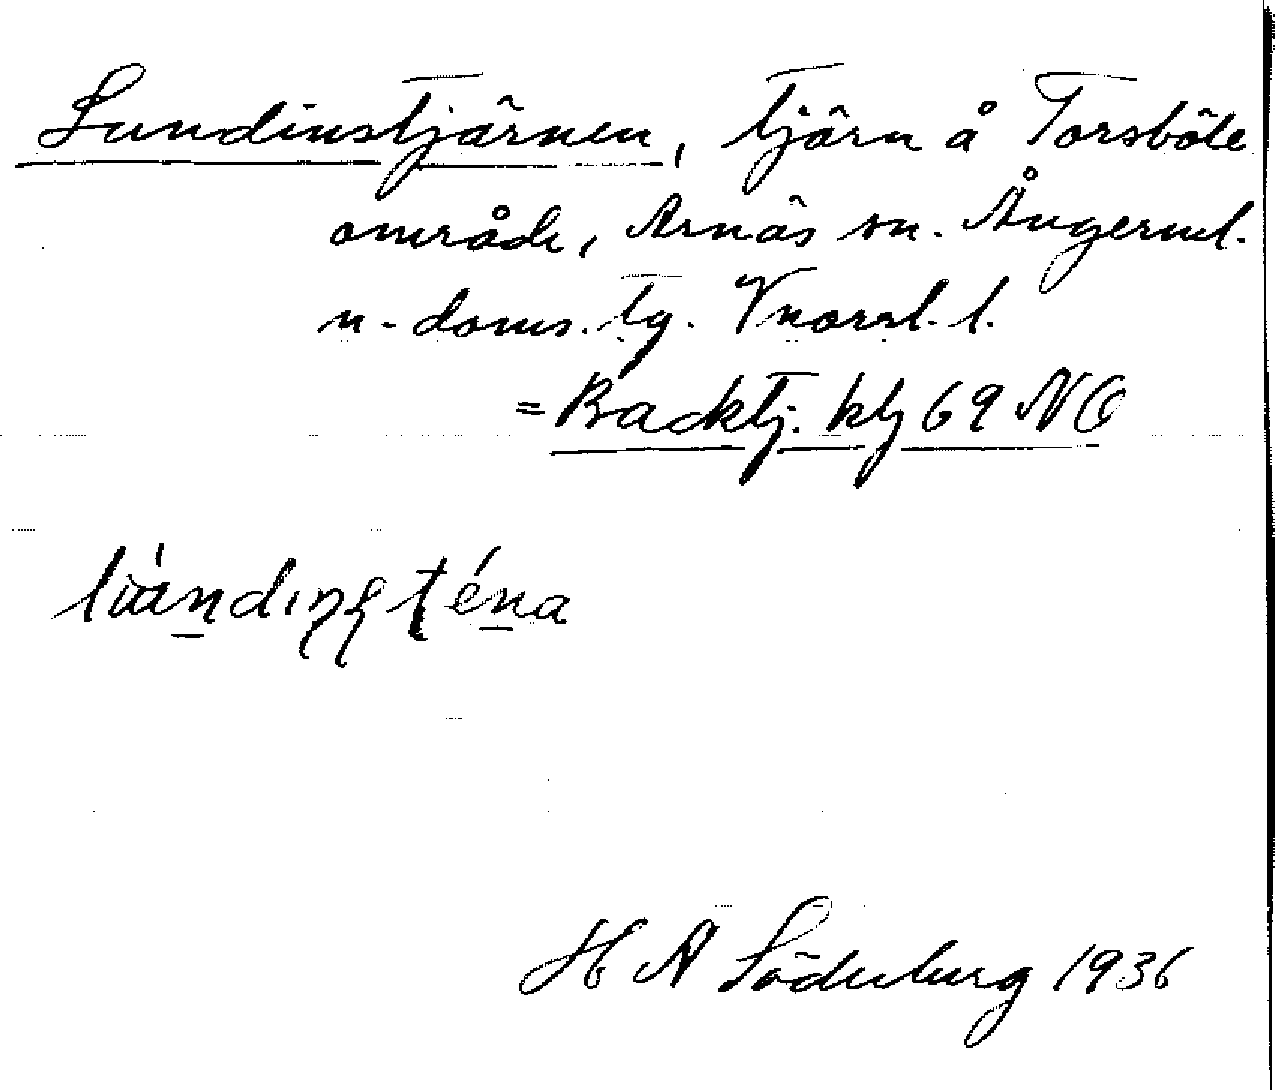 Lundinstjärnen, tjärn å Torsböle
område, Arnäs sn. Ångerml.
n. doms. tg. Vnorrl. l.
= Backtj. kbj 69 NO
H A Söderberg 1936